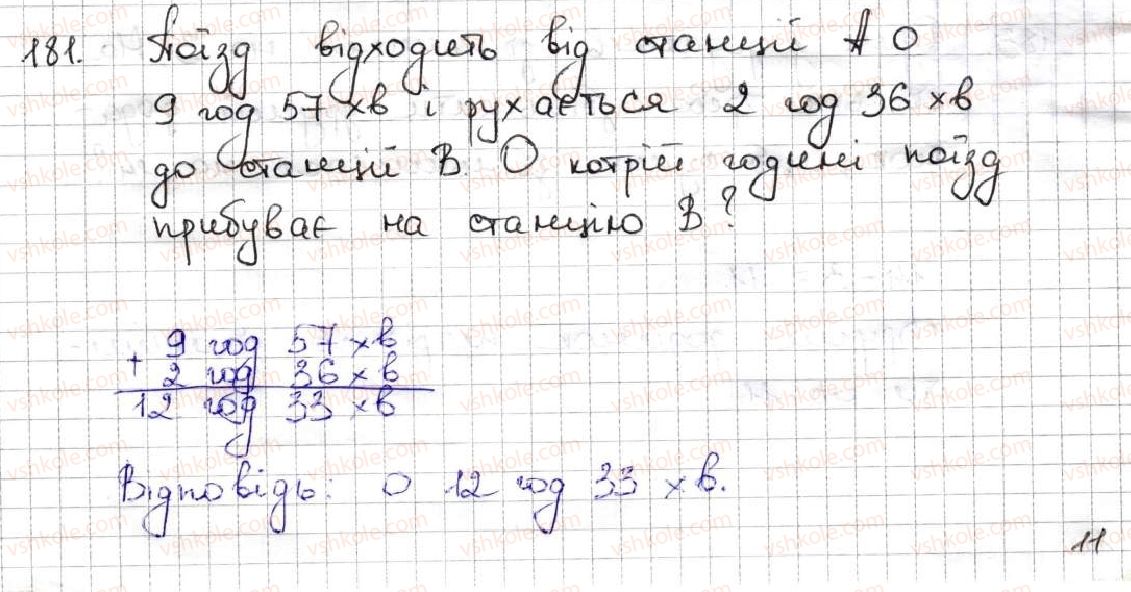 181. Поїзд відходить від станції А О
9 год 57 хв і рухається 2 год 36 хв
до станції В. О котрій годині поїзд
прибуває на станцію В?
+ 9 год 57 хв
2 год 36 хв
12 год 33 хв
Відповідь: О 12 год 33 хв.
11